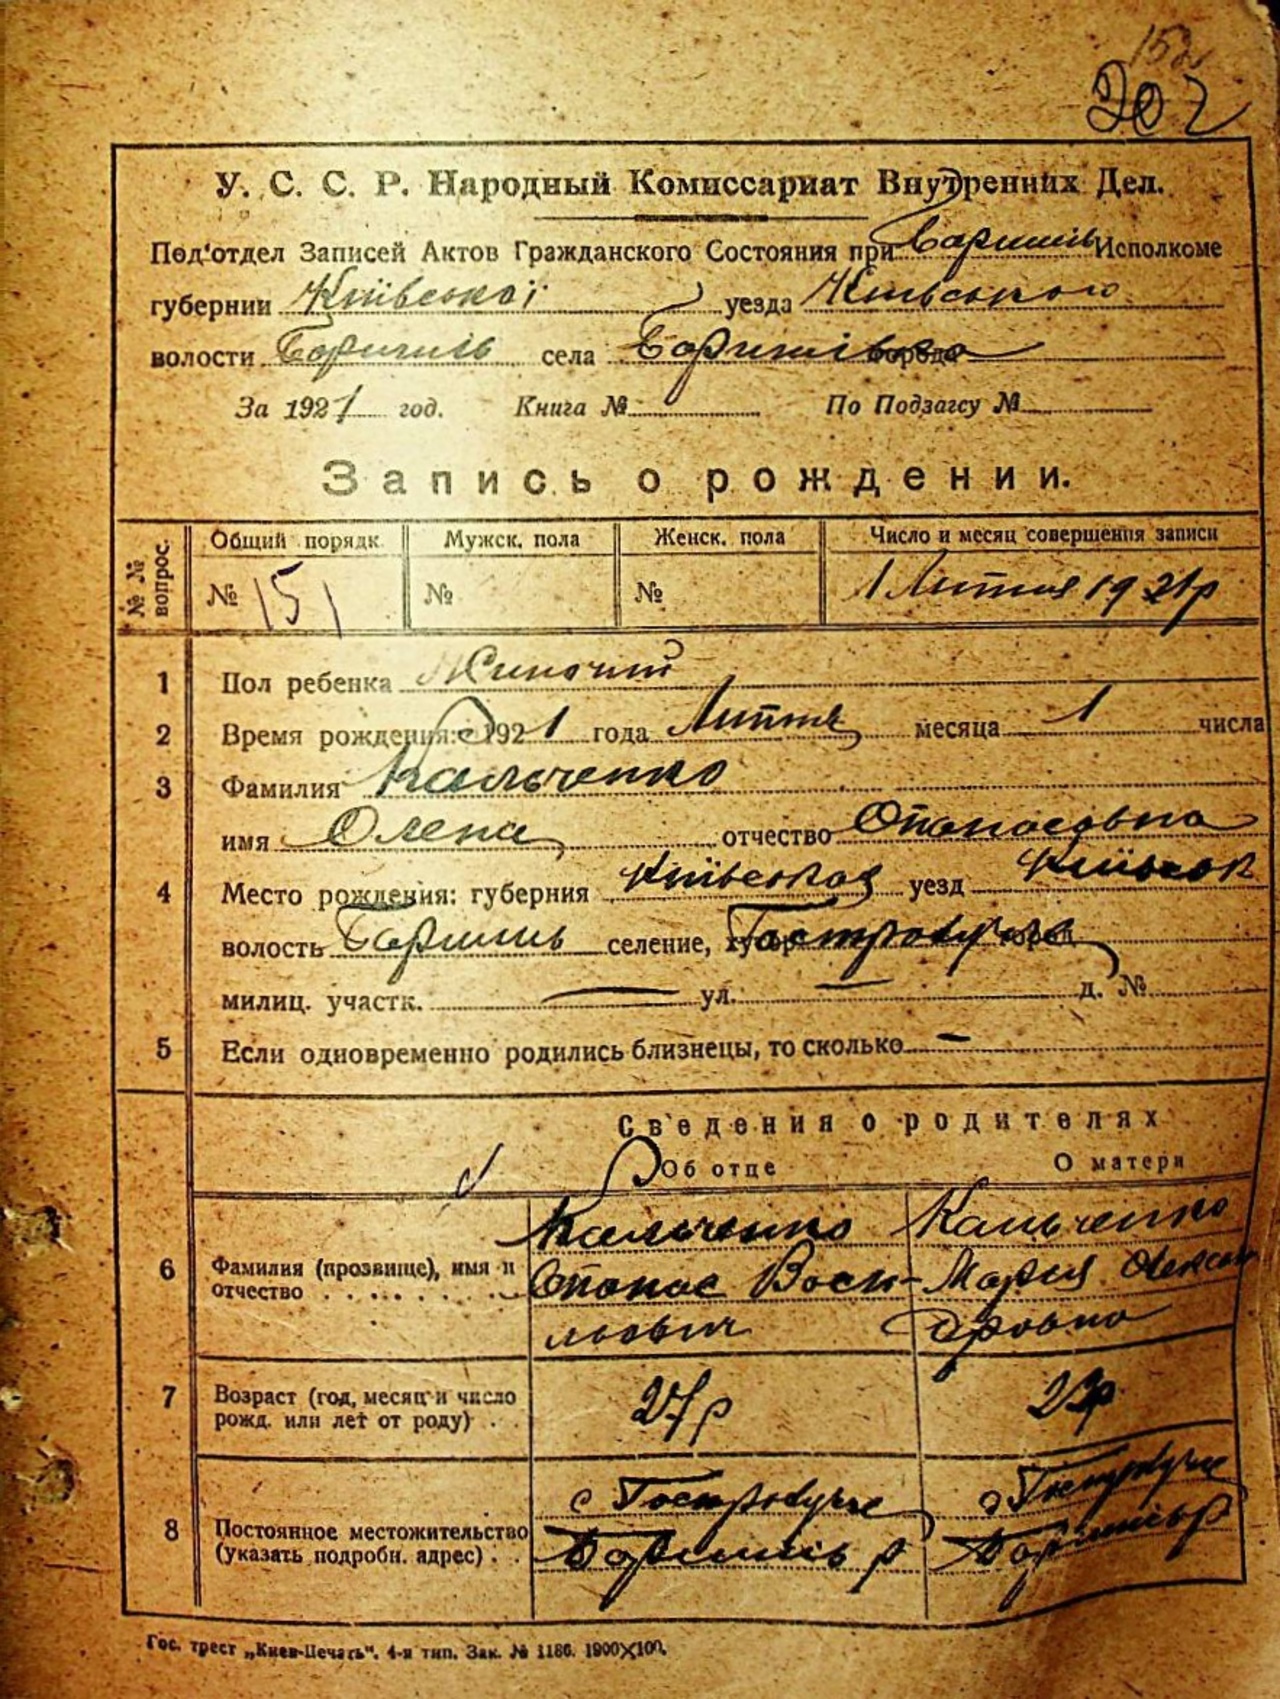 202
У. С. С. Р. Народный Комиссариат Внутренних Дел.
Под'отдел Записей Актов Гражданского Состояния при Баришів Исполкоме
губернии Київської уезда Київського
волости Баришів села Баришівка города
За 1921 год. Книга № По Подзагсу №
Запись о рождении.
№ № вопрос. Общий порядк. Мужск. пола Женск. пола Число и месяц совершения записи
№ 151 № № 1 Лютня 1921р
1 Пол ребенка Жиночий
2 Время рождения: 1921 года Лютня месяца 1 числа
3 Фамилия Кальченко
имя Олена отчество Опанасовна
4 Место рождения: губерния Київская уезд Київськ
волость Баришів селение, хутор город
милиц. участк. — ул. — д. №
5 Если одновременно родились близнецы, то сколько —
Сведения о родителях
Об отце О матери
Кальченко Кальченко
6 Фамилия (прозвище), имя и отчество Опанас Васи- Мария Олексан
льович дровна
7 Возраст (год, месяц и число рожд. или лет от роду) 27р 23р
8 Постоянное местожительство (указать подробн. адрес) Баришів р Баришів р
Гос. трест „Киев-Печать". 4-я тип. Зак. № 1186. 1900×100.